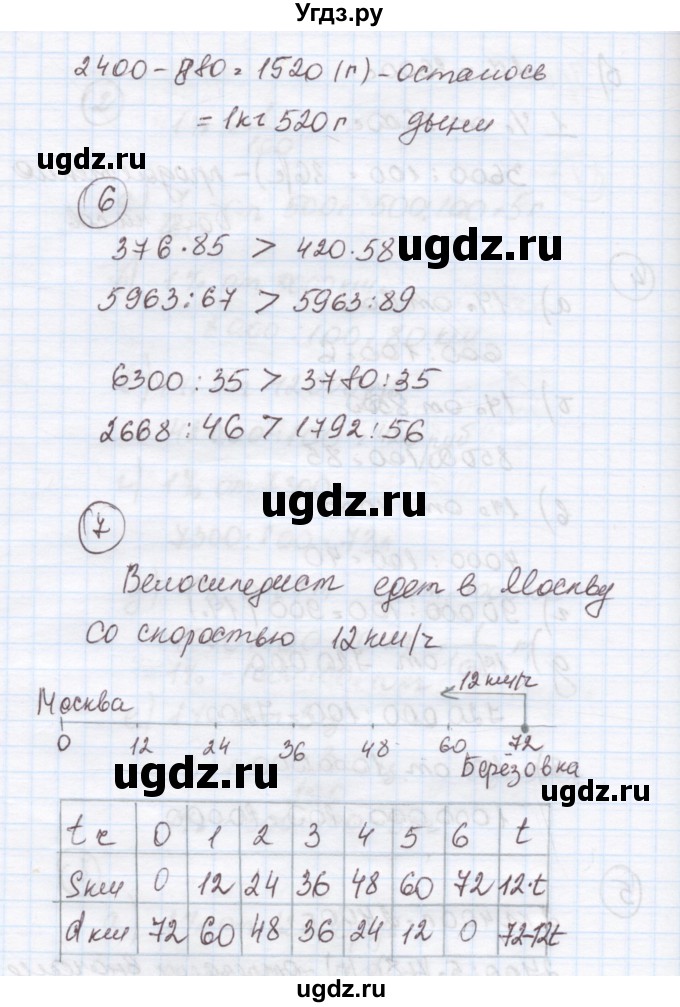 Угдз.ру
2400-880=1520(г)-осталось
=1кг 520г дыни
ugdz.ru
6
376·85 > 420·58
ugdz.ru
5963:67 > 5963:89
6300:35 > 3780:35
2668:46 > 1792:56
ugdz.ru
7
Велосипедист едет в Москву
со скоростью 12 км/ч
Москва 12 км/ч
0 12 24 36 48 60 72
Берёзовка
ugdz.ru
ugdz.ru
t ч 0 1 2 3 4 5 6 t
S км 0 12 24 36 48 60 72 12·t
d км 72 60 48 36 24 12 0 72-12t
ugdz.ru